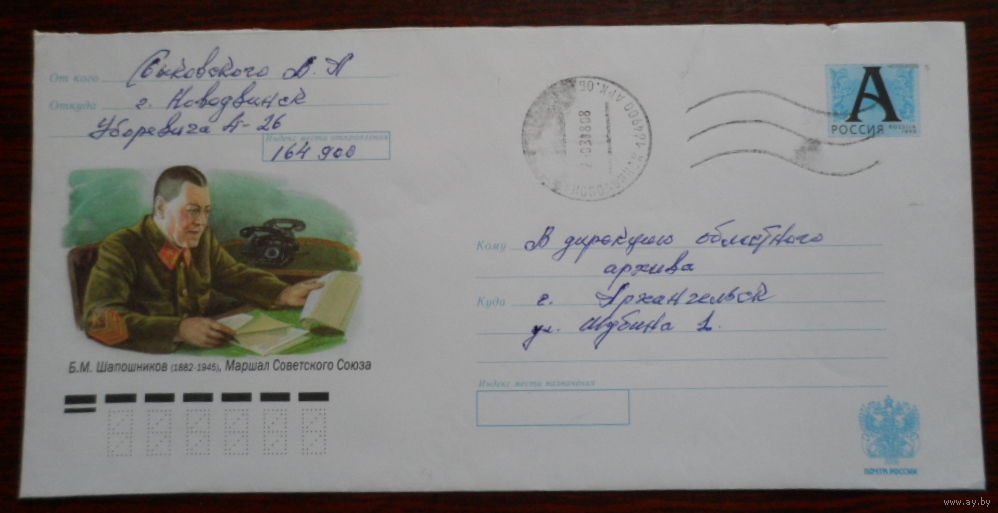 От кого Быковского В.П
Откуда г. Новодвинск
Уборевича А-26
Индекс места отправления
164 900
А
РОССИЯ ROSSIJA
Кому В дирекцию областного
архива
Куда г. Архангельск
ул. Шубина 1.
Б.М. Шапошников (1882-1945), Маршал Советского Союза
Индекс места назначения
ПОЧТА РОССИИ
www.ay.by